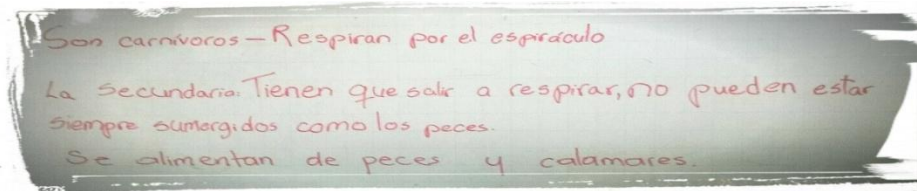 Son carnívoros - Respiran por el espiráculo
La secundaria: Tienen que salir a respirar, no pueden estar
siempre sumergidos como los peces.
Se alimentan de peces y calamares.